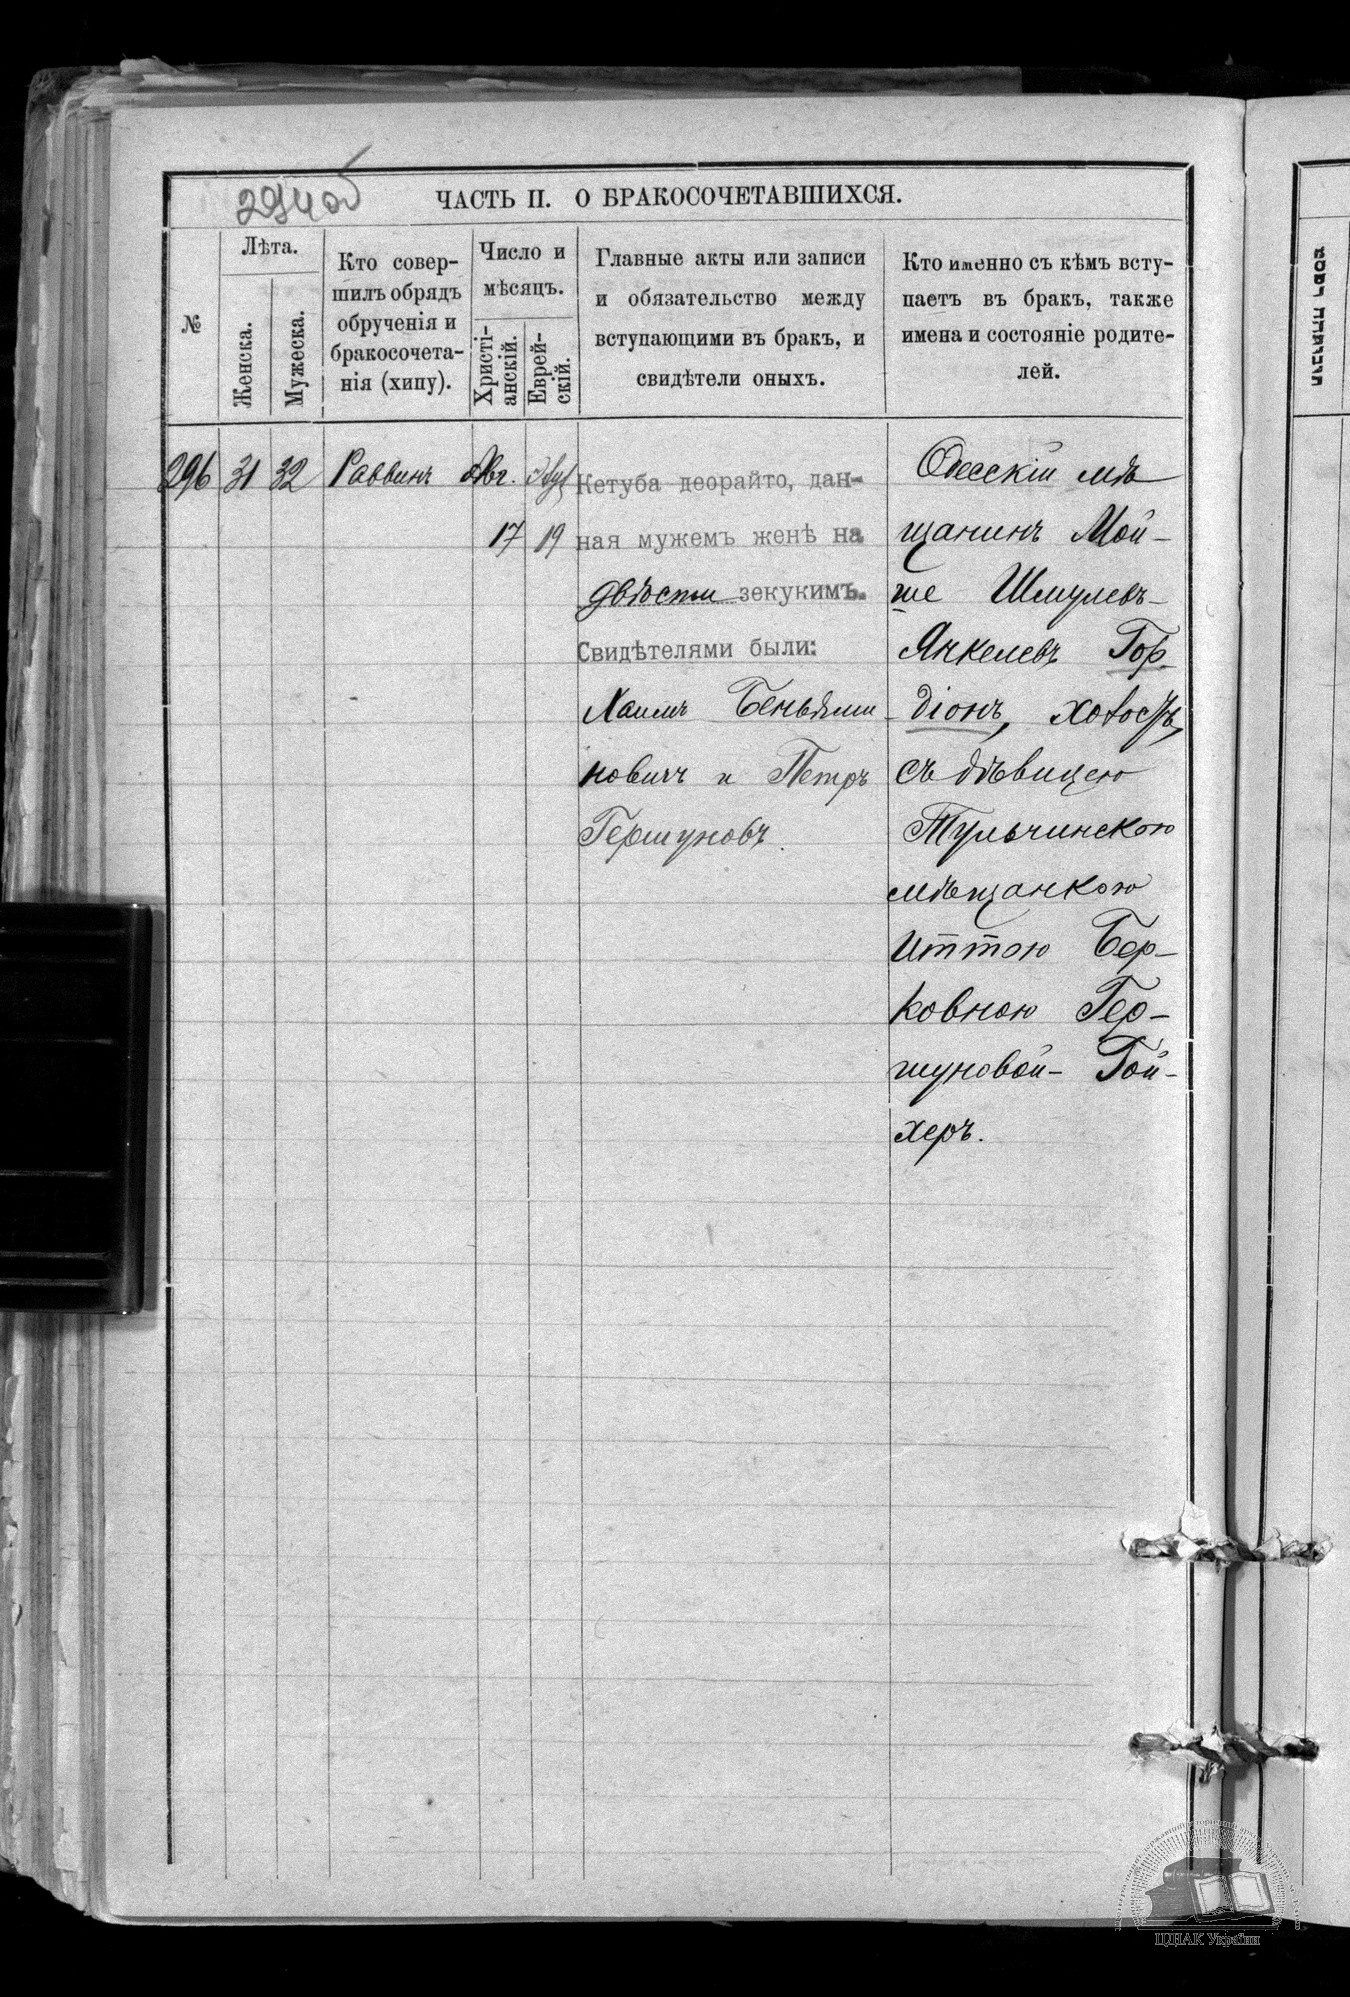 294об
ЧАСТЬ II. О БРАКОСОЧЕТАВШИХСЯ.
№
Лѣта.
Женска.
Мужеска.
Кто совер-
шилъ обрядъ
обрученія и
бракосочета-
нія (хипу).
Число и
мѣсяцъ.
Христі-
анскій.
Еврей-
скій.
Главные акты или записи
и обязательство между
вступающими въ бракъ, и
свидѣтели оныхъ.
Кто именно съ кѣмъ всту-
паетъ въ бракъ, также
имена и состояніе родите-
лей.
296 31 32 Раввинъ Авг.
17 19
Кетуба деорайто, дан-
ная мужемъ женѣ на
двѣсти зекукимъ.
Свидѣтелями были:
Хаимъ Беньями
новичъ и Петръ
Гершуновъ.
Одесскій мѣ
щанинъ Мой-
ше Шмулевъ-
Янкелевъ Гор-
діонъ, холостъ,
съ дѣвицею
Тульчинскою
мѣщанкою
Иттою Бер-
ковною Гер-
шуновой- Гой-
херъ.
ЦДІАК України